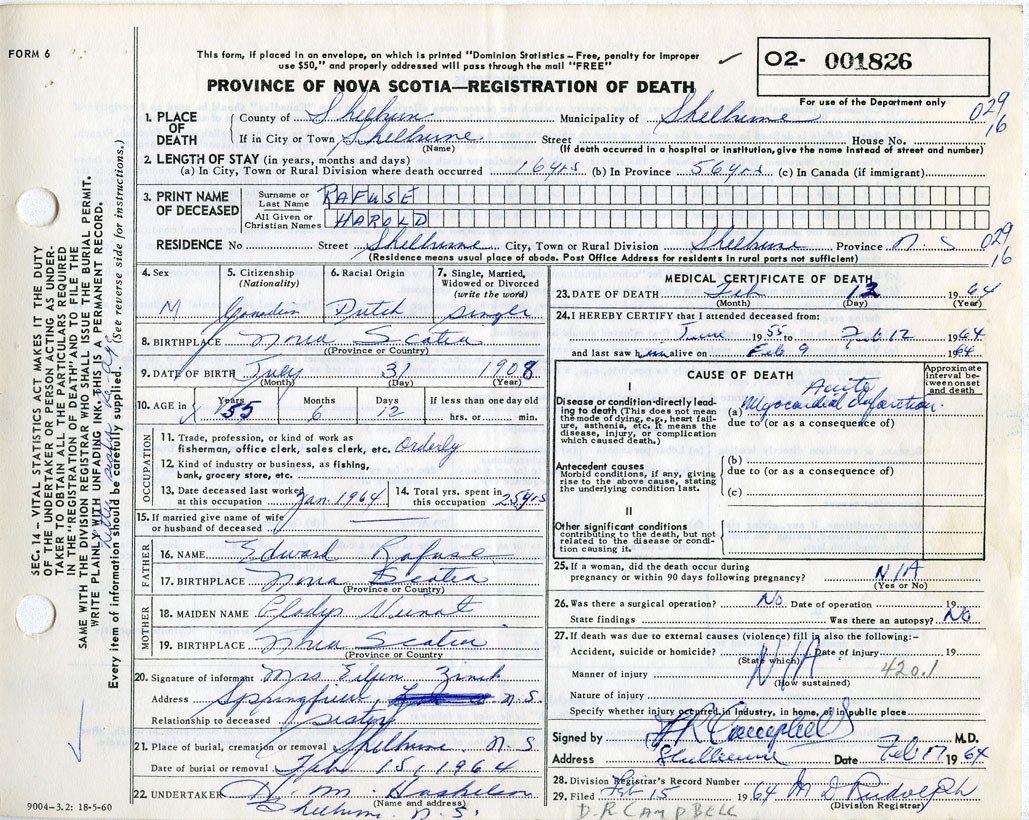 FORM 6
This form, if placed in an envelope, on which is printed "Dominion Statistics – Free, penalty for improper
use $50," and properly addressed will pass through the mail "FREE"
PROVINCE OF NOVA SCOTIA—REGISTRATION OF DEATH
O2- 001826
For use of the Department only
SEC. 14 – VITAL STATISTICS ACT MAKES IT THE DUTY
OF THE UNDERTAKER OR PERSON ACTING AS UNDER-
TAKER TO OBTAIN ALL THE PARTICULARS REQUIRED
IN THE "REGISTRATION OF DEATH" AND TO FILE THE
SAME WITH THE DIVISION REGISTRAR WHO SHALL ISSUE THE BURIAL PERMIT.
WRITE PLAINLY WITH UNFADING INK. THIS IS A PERMANENT RECORD.
Every item of information should be carefully supplied. (See reverse side for instructions.)
1. PLACE OF DEATH
County of Shelburn Municipality of Shelburne 029
16
If in City or Town Shelburne Street House No.
(Name) (If death occurred in a hospital or institution, give the name instead of street and number)
2. LENGTH OF STAY (in years, months and days)
(a) In City, Town or Rural Division where death occurred 16 yrs (b) In Province 56 yrs (c) In Canada (if immigrant)
3. PRINT NAME OF DECEASED
Surname or Last Name RAFUSE
All Given or Christian Names HAROLD
RESIDENCE No Street Shelburne City, Town or Rural Division Shelburne Province N. S 029
16
(Residence means usual place of abode. Post Office Address for residents in rural parts not sufficient)
4. Sex M
5. Citizenship (Nationality) Canadian
6. Racial Origin Dutch
7. Single, Married, Widowed or Divorced (write the word) Single
8. BIRTHPLACE Nova Scotia
(Province or Country)
9. DATE OF BIRTH July 31 1908
(Month) (Day) (Year)
10. AGE in Years 55 Months 6 Days 12 If less than one day old
hrs. or min.
OCCUPATION
11. Trade, profession, or kind of work as
fisherman, office clerk, sales clerk, etc. Orderly
12. Kind of industry or business, as fishing,
bank, grocery store, etc.
13. Date deceased last worked at this occupation Jan. 1964
14. Total yrs. spent in this occupation 25 yrs
15. If married give name of wife
or husband of deceased
FATHER
16. NAME Edward Rafuse
17. BIRTHPLACE Nova Scotia
(Province or Country)
MOTHER
18. MAIDEN NAME Gladys
19. BIRTHPLACE Nova Scotia
(Province or Country
20. Signature of informant Mrs
Address Springfield, N. S.
Relationship to deceased Sister
21. Place of burial, cremation or removal Shelburne N. S
Date of burial or removal Feb. 15, 1964
22. UNDERTAKER H. M.
(Name and address)
Shelburne N. S.
9004–3.2: 18-5-60
MEDICAL CERTIFICATE OF DEATH
23. DATE OF DEATH Feb 12 1964
(Month) (Day) (Year)
24. I HEREBY CERTIFY that I attended deceased from:
June 1955 to Feb 12 1964
and last saw him alive on Feb 9 1964
CAUSE OF DEATH
Approximate interval between onset and death
I
Disease or condition directly lead-
ing to death (This does not mean
the mode of dying, e.g., heart fail-
ure, asthenia, etc. It means the
disease, injury, or complication
which caused death.)
(a) Acute
Myocardial Infarction
due to (or as a consequence of)
Antecedent causes
Morbid conditions, if any, giving
rise to the above cause, stating
the underlying condition last.
(b)
due to (or as a consequence of)
(c)
II
Other significant conditions
contributing to the death, but not
related to the disease or condi-
tion causing it.
25. If a woman, did the death occur during
pregnancy or within 90 days following pregnancy? N/A
(Yes or No)
26. Was there a surgical operation? No. Date of operation 19
State findings Was there an autopsy? No
27. If death was due to external causes (violence) fill in also the following:–
Accident, suicide or homicide? Date of injury 19
(State which)
N/A
Manner of injury 420.1
(How sustained)
Nature of injury
Specify whether injury occurred in industry, in home, or in public place
Signed by Campbell M.D.
Address Date Feb 17 1964
28. Division Registrar's Record Number
29. Filed Feb 15 1964 M D Rudolph
(Division Registrar)
D. R CAMPBELL